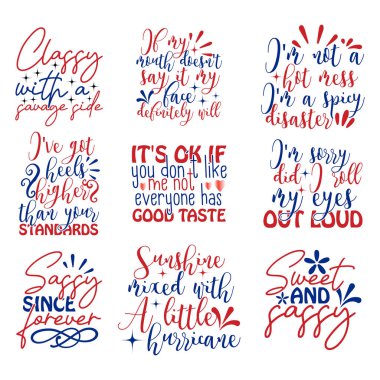 Classy
with a
savage side
If my
mouth doesn't
say it my
face
definitely will
I'm not a
hot mess
I'm a spicy
disaster
I've got
heels
higher
than your
STANDARDS
IT'S OK IF
you don't like
me not
everyone has
GOOD TASTE
I'm sorry
did I roll
my eyes
OUT LOUD
Sassy
SINCE
forever
Sunshine
mixed with
A little
hurricane
Sweet
AND
sassy